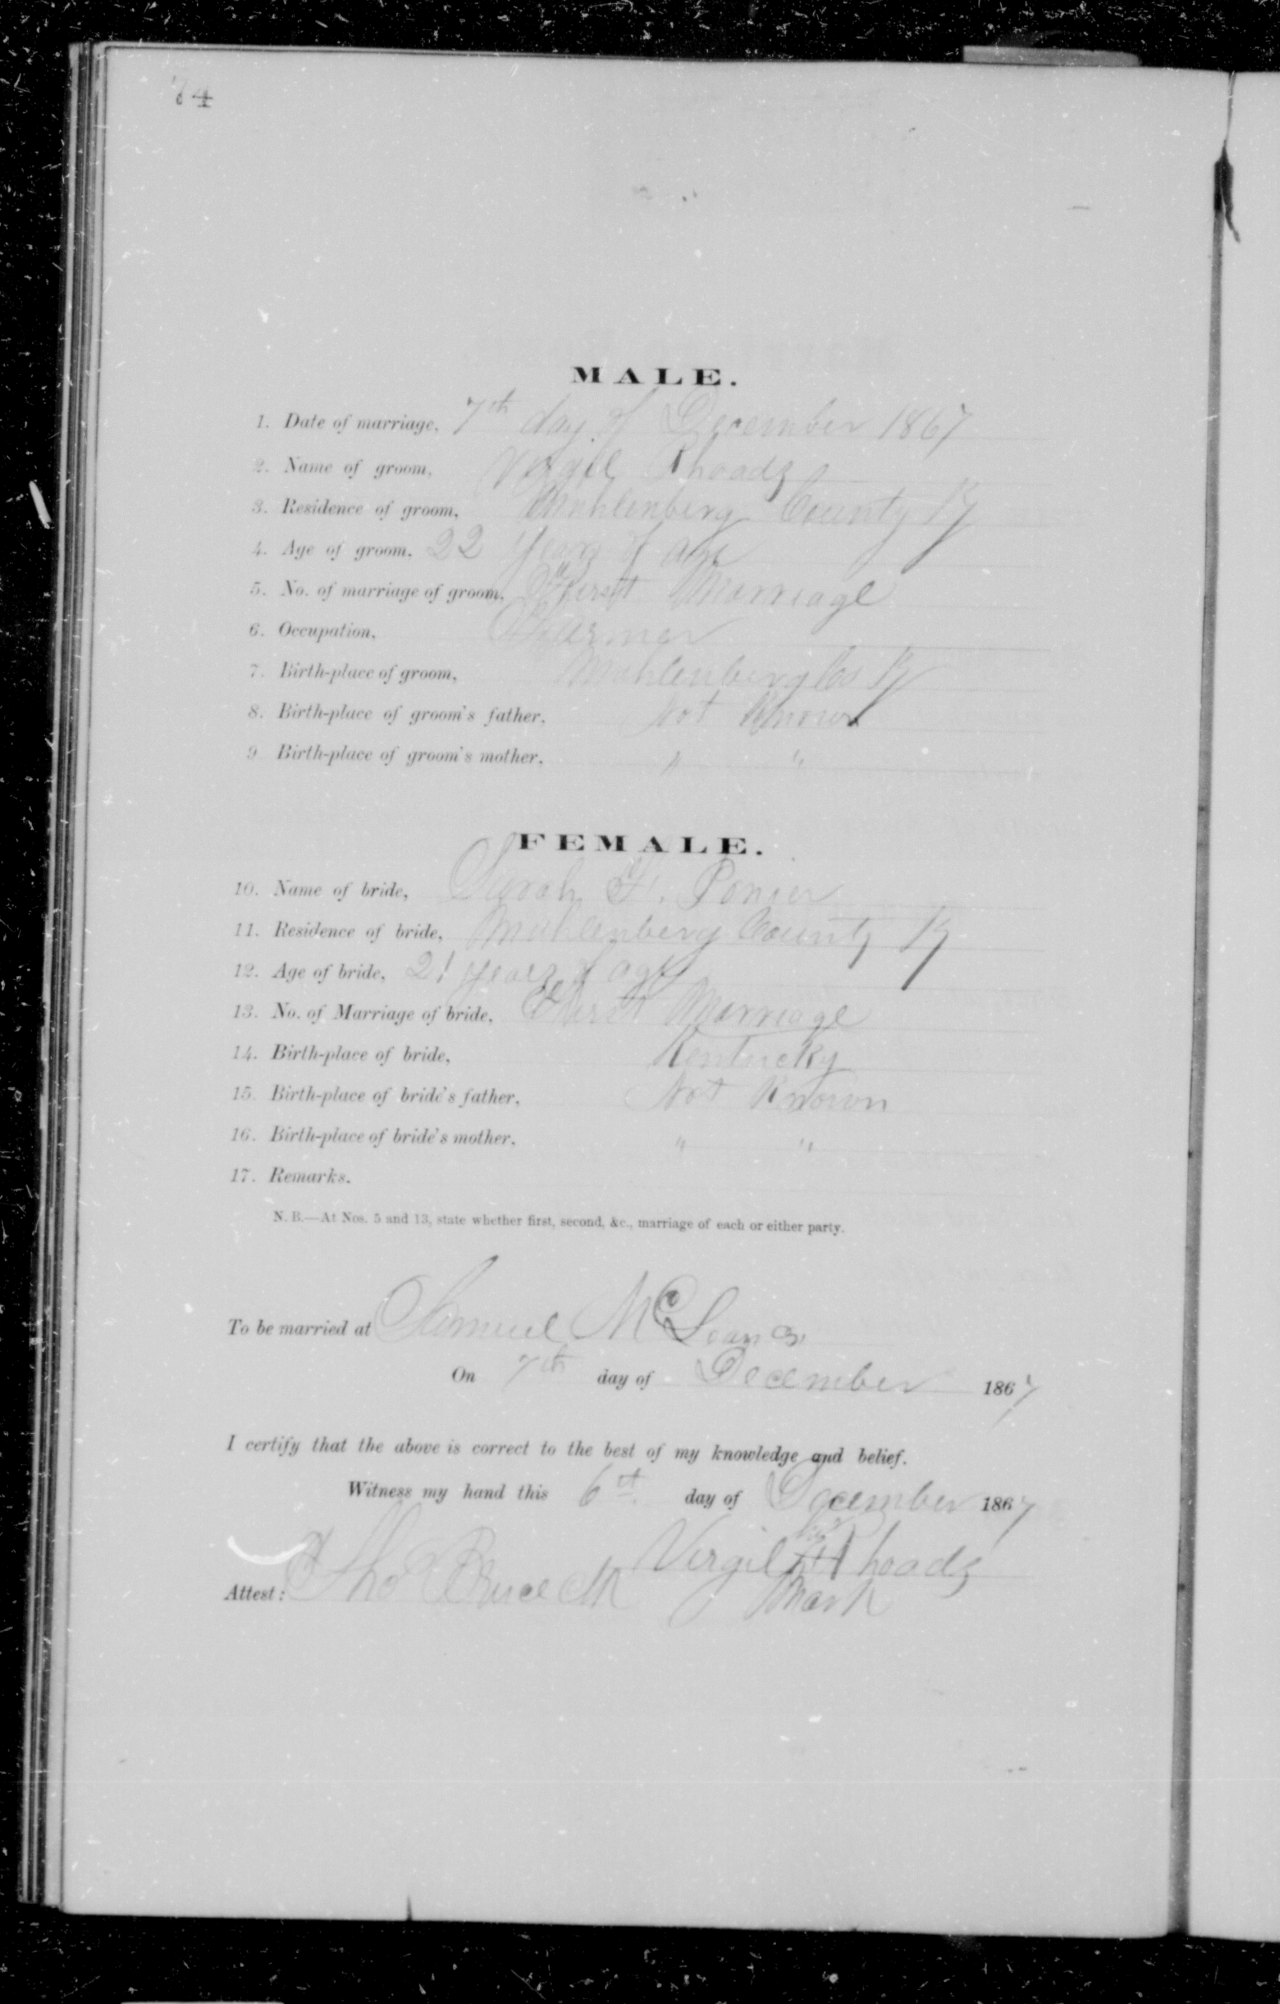 74
MALE.
1. Date of marriage, 7th day of December 1867
2. Name of groom, Virgil Rhoads
3. Residence of groom, Muhlenberg County Ky
4. Age of groom, 22 years of age
5. No. of marriage of groom, First Marriage
6. Occupation, Farmer
7. Birth-place of groom, Muhlenberg Co Ky
8. Birth-place of groom's father, Not Known
9 Birth-place of groom's mother, " "
FEMALE.
10. Name of bride, Sarah F.
11. Residence of bride, Muhlenberg County Ky
12. Age of bride, 21 years of age
13. No. of Marriage of bride, First Marriage
14. Birth-place of bride, Kentucky
15. Birth-place of bride's father, Not Known
16. Birth-place of bride's mother, " "
17. Remarks.
N. B.—At Nos. 5 and 13, state whether first, second, &c., marriage of each or either party.
To be married at Samuel
On 7th day of December 1867
I certify that the above is correct to the best of my knowledge and belief.
Witness my hand this 6th day of December 1867
his
Virgil Rhoads
Attest: Tho Bruce mark